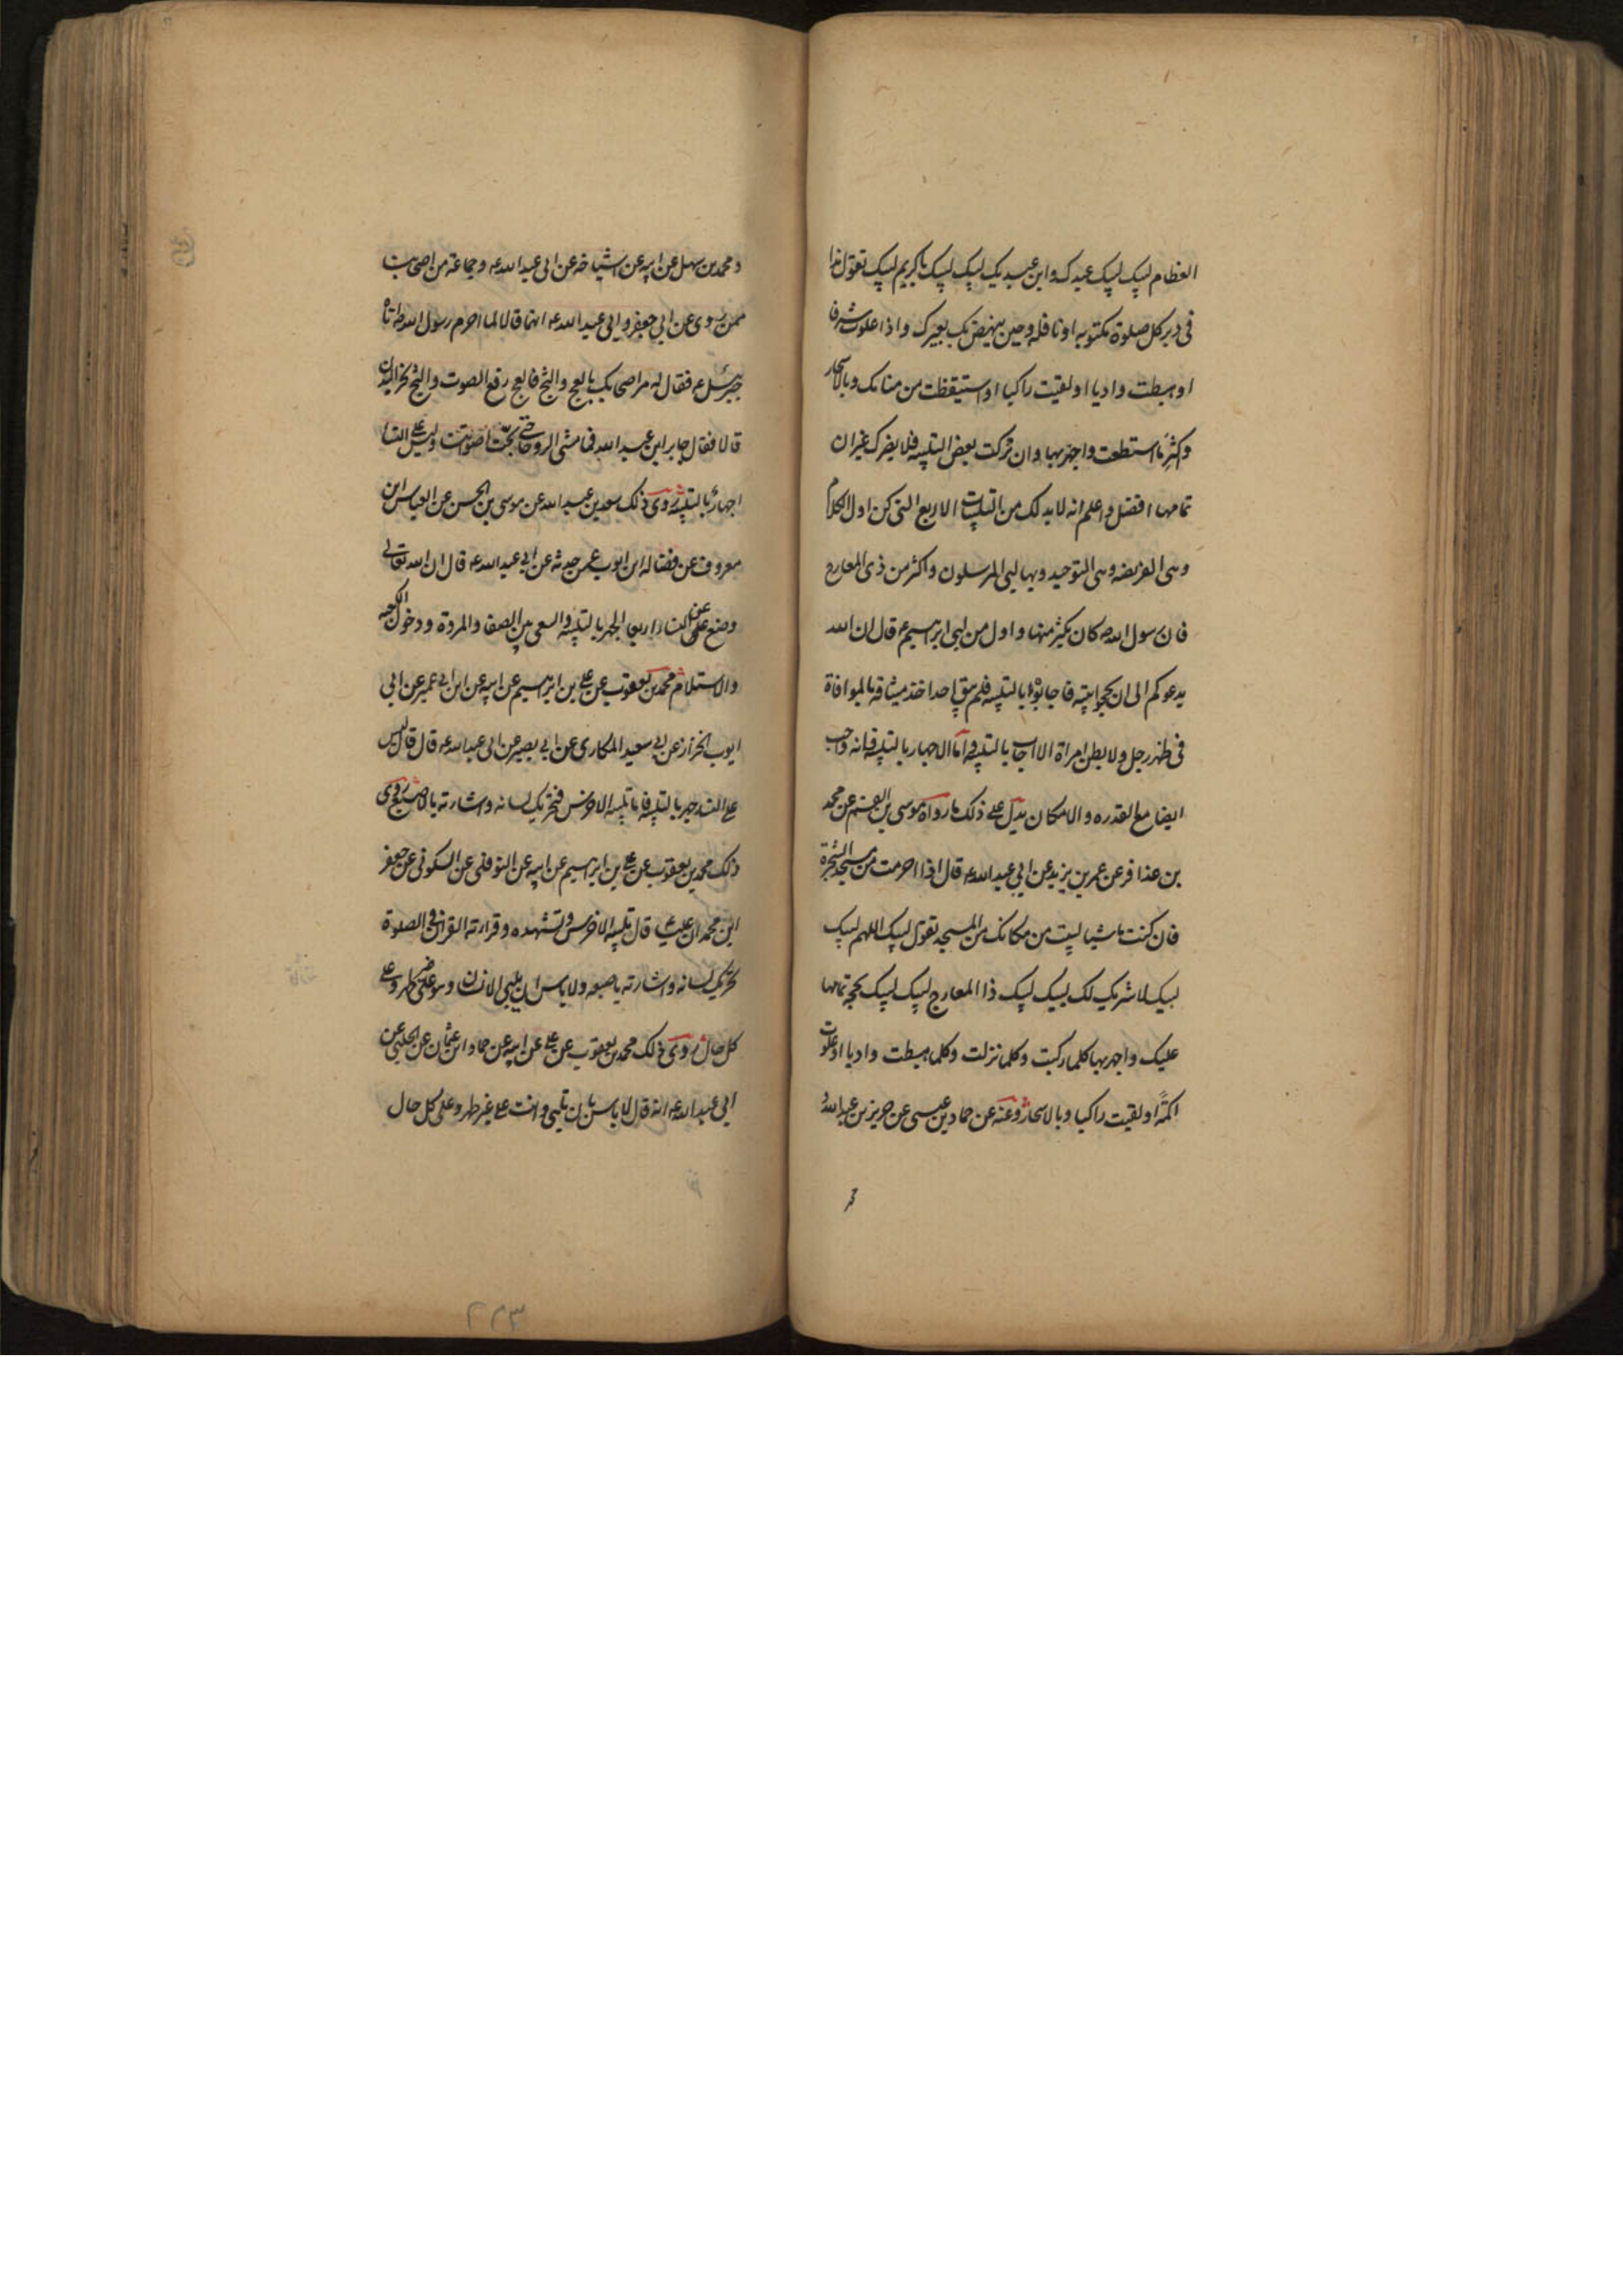 العظام لبيك لبيك عبدك وابن عبديك لبيك لبيك يا كريم لبيك تقول هذا
فى دبر كل صلوة مكتوبه او نافله وحين ينهض بك بعيرك واذا علوت شرفا
او هبطت واديا او لقيت راكبا او استيقظت من منامك وبالاسحار
واكثر ما استطعت واجهر بها وان تركت بعض التلبيه فلا يضرك غير ان
تمامها افضل واعلم انه لا بد لك من التلبيات الاربع التى كن اول الكلام
وهى الفريضه وهى التوحيد وبها لبى المرسلون واكثر من ذى المعارج
فان رسول الله ص كان يكثر منها واول من لبى ابرهيم ع قال ان الله
يدعوكم الى ان تحجوا بيته فاجابوه بالتلبيه فلم يبق احد اخذ ميثاقه بالموافاة
فى ظهر رجل ولا بطن امراة الا اجاب بالتلبيه واما الاجهار بالتلبيه فانه واجب
ايضا مع القدره والامكان يدل على ذلك ما رواه موسى بن القسم عن محمد
بن عذافر عن عمر بن يزيد عن ابى عبد الله ع قال اذا احرمت من مسجد الشجرة
فان كنت ماشيا لبيت من مكانك من المسجد تقول لبيك اللهم لبيك
لبيك لا شريك لك لبيك لبيك ذا المعارج لبيك لبيك بحجة تمامها
عليك واجهر بها كلما ركبت وكلما نزلت وكلما هبطت واديا او علوت
اكمة او لقيت راكبا وبالاسحار وعنه عن حماد بن عيسى عن حريز بن عبد الله
ومحمد بن سهل عن ابيه عن اشياخه عن ابى عبد الله ع وجماعة من اصحابنا
ممن روى عن ابى جعفر وابى عبد الله ع انهما قالا لما احرم رسول الله ص اتاه
جبرئيل ع فقال له مر اصحابك بالعج والثج فالعج رفع الصوت والثج نحر البدن
قالا فقال جابر ابن عبد الله فما مشى الروحا حتى بحت اصواتنا وليس على النسا
اجهار بالتلبيه روى ذلك سعد بن عبد الله عن موسى بن الحسن عن العباس ابن
معروف عن فضاله ابن ايوب عمن حدثه عن ابى عبد الله ع قال ان الله تعالى
وضع عن النسا اربعا الجهر بالتلبيه والسعى بين الصفا والمروة ودخول الكعبه
والاستلام محمد بن يعقوب عن على بن ابرهيم عن ابيه عن ابن ابى عمير عن ابى
ايوب الخزاز عن ابى سعيد المكارى عن ابى بصير عن ابى عبد الله ع قال قال ليس
على النسا جهر بالتلبيه فاما تلبيه الاخرس فتحريك لسانه واشارته بالاصبع روى
ذلك محمد بن يعقوب عن على بن ابرهيم عن ابيه عن النوفلى عن السكونى عن جعفر
ابن محمد ان عليا ع قال تلبيه الاخرس وتشهده وقراءته القران فى الصلوة
تحريك لسانه واشارته باصبعه ولا باس ان يلبى الانسان وهو على غير طهر وعلى
كل حال روى ذلك محمد بن يعقوب عن على عن ابيه عن حماد ابن عثمان عن الحلبى عن
ابى عبد الله ع انه قال لا باس بان تلبى وانت على غير طهر وعلى كل حال
محمد
٢٢٣